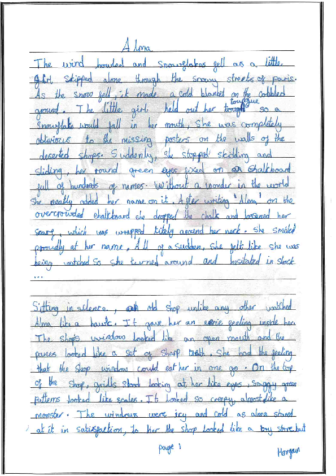 Alma
The wind howled and snowflakes fell as a little
girl skipped alone through the snowy streets of paris.
As the snow fell, it made a cold blanket on the cobbled
ground. The little girl held out her tongue so a
snowflake would fall in her mouth, She was completely
oblivious to the missing posters on the walls of the
deserted shops. Suddenly, she stopped skidding and
sliding, her round green eyes fixed on a chalkboard
full of hundreds of names. Without a wonder in the world
she neatly added her name on it. After writing 'Alma' on the
overcrowded chalkboard she dropped the chalk and loosened her
scarf, which was wrapped tightly around her neck. She smiled
proudly at her name. All of a sudden, she felt like she was
being watched so she turned around and hesitated in shock
...
Sitting in silence, old shop unlike any other watched
Alma like a hawk. It gave her an eerie feeling inside her.
The shop's window looked like an open mouth and the
looked like a set of sharp teeth. She had the feeling
that the shop window could eat her in one go. On the top
of the shop, stood looking at her like eyes,
patterns looked like scales. It looked so creepy, almost like a
monster. The windows were icy and cold as alma stared
at it in satisfaction, to her the shop looked like a toy store but
page 1
Morgan